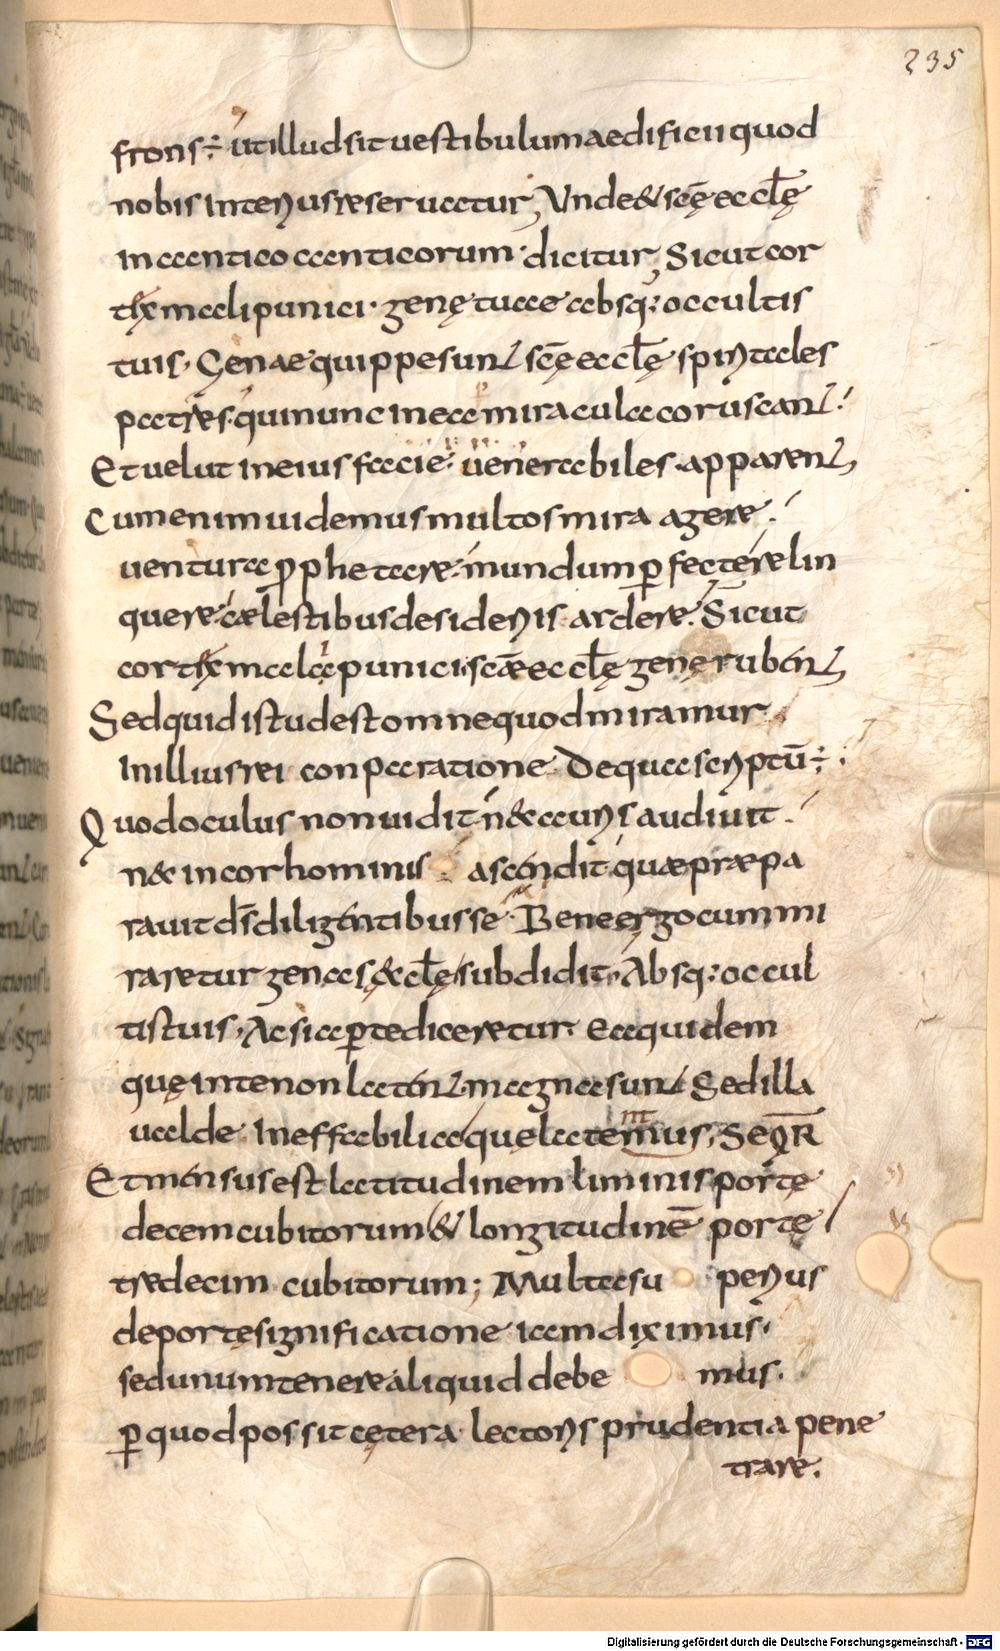 235
frons÷ ut illud sit uestibulum aedificii quod
nobis interius reseruatur, Unde & scę eccłę
in cantico canticorum dicitur, Sicut cor
tex mali punici· genę tuae absq; occultis
tuis· Genae quippe sunt scę eccłę spiritales
patres· qui nunc in ea miracula coruscant·
Et uelut in eius facie· uenerabiles· apparent,
Cum enim uidemus multos mira agere·
uentura pphetare· mundum pfecte relin
quere· cælestibus desideriis ardere· Sicut
cortex mala punici· scæ eccłę genę rubent,
Sed quid istud est omne quod miramur
In illius rei conparatione De qua scriptū÷
Quod oculus non uidit· n& auris audiuit·
n& in cor hominis ascendit· quæ præpa
rauit ds diligentibus se· Bene ergo cum mi
raretur genas & cłę subdidit· Absq; occul
tis tuis· Ac si apte diceretur· Ea quidem
quę in te non latent· magna sunt Sed illa
ualde ineffabilia quę latemus, SEQR
Et mensus est latitudinem liminis portę
decem cubitorum & longitudinē portę
tredecim cubitorum; Multa su perius
de portę significatione iam diximus·
sed unum tenere aliquid debe mus·
p quod possit cętera lectoris prudentia pene
trare·
Digitalisierung gefördert durch die Deutsche Forschungsgemeinschaft - DFG